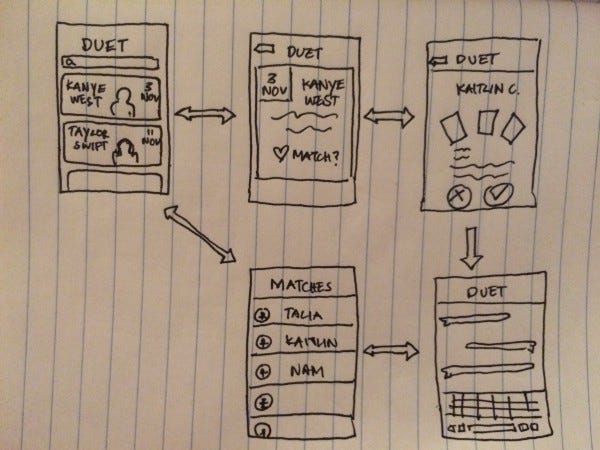 DUET
KANYE
WEST
3
NOV
TAYLOR
SWIFT
11
NOV
DUET
3
NOV
KANYE
WEST
MATCH?
DUET
KAITLIN C.
MATCHES
TALIA
KAITLIN
NAM
DUET